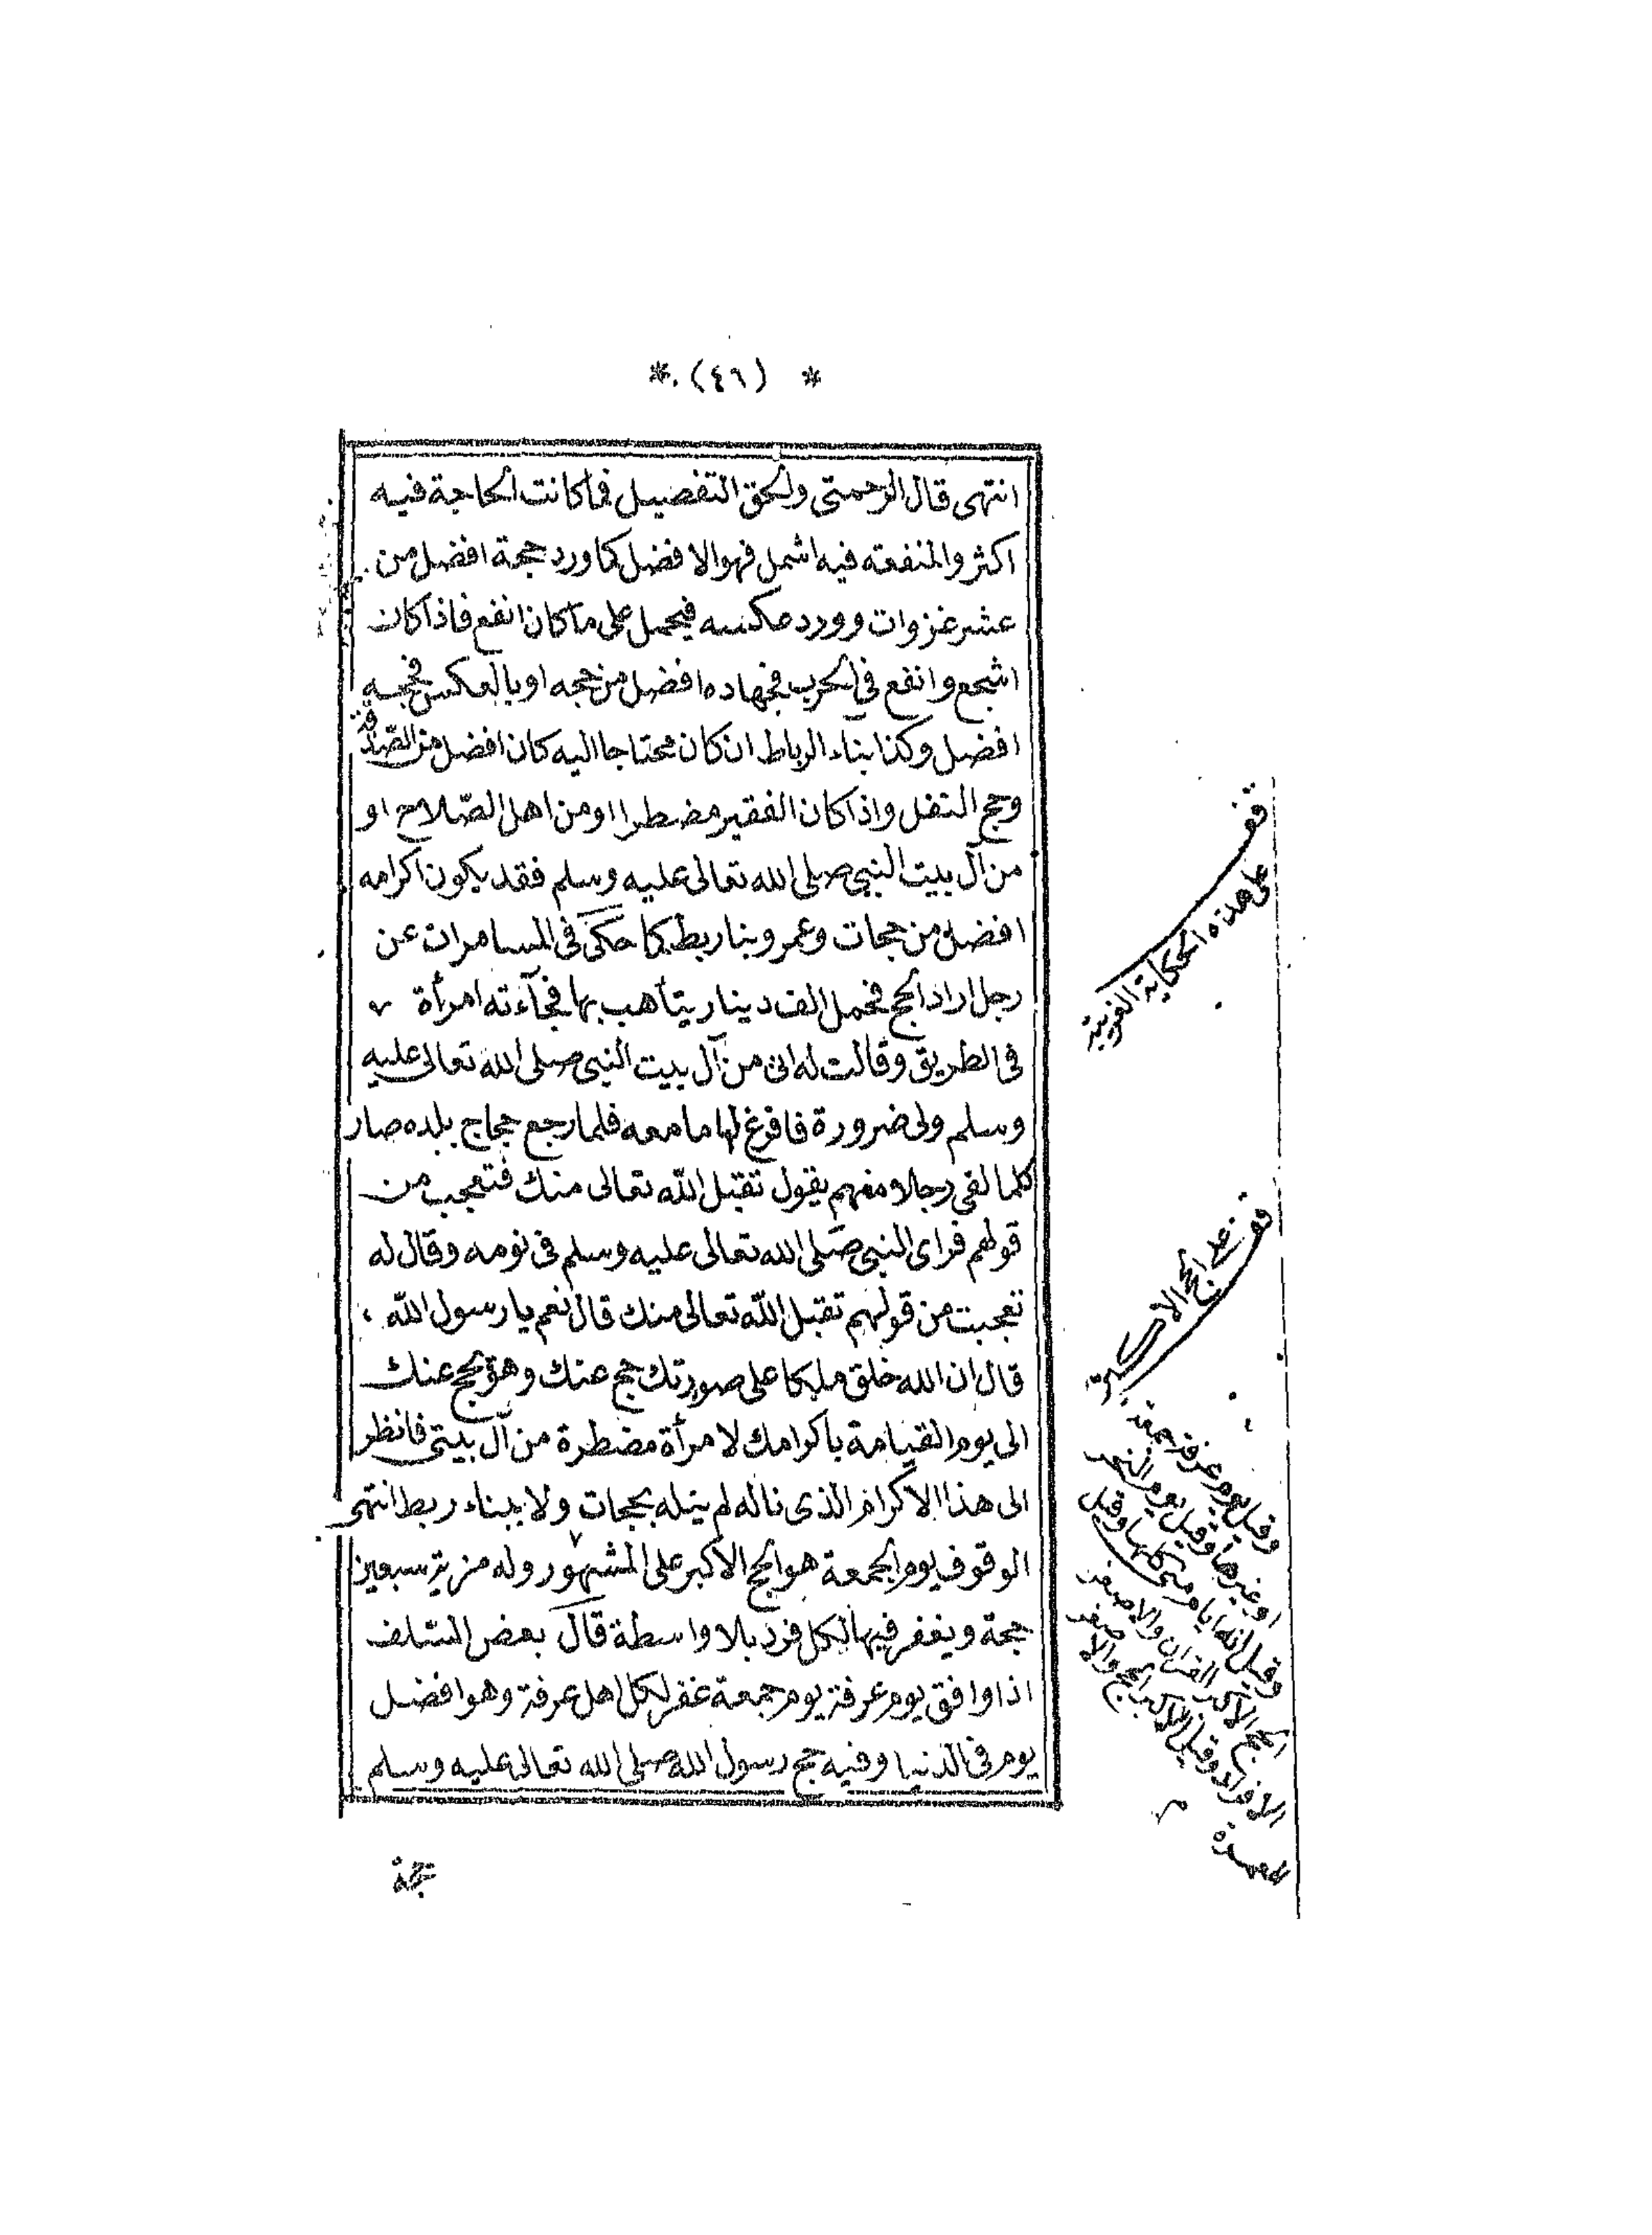 * (٤٦) *
انتهى قال الرحمتى والحق التفصيل فما كانت الحاجة فيه
اكثر والمنفعته فيه اشمل فهو الافضل كما ورد حجة افضل من
عشر غزوات وورد عكسه فيحمل على ما كان انفع فاذا كان
اشجع وانفع في الحرب فجهاده افضل من حجه او بالعكس فحجه
افضل وكذا بناء الرباط ان كان محتاجا اليه كان افضل من الصّدقة
وحج النفل واذا كان الفقير مضطرا او من اهل الصّلاح او
من آل بيت النبي صلى الله تعالى عليه وسلم فقد يكون اكرامه
افضل من حجات وعمر وبناء ربط كما حكى فى المسامرات عن
رجل اراد الحج فحمل الف دينار يتأهب بها فجآءته امرأة
فى الطريق وقالت له انى من آل بيت النبى صلى الله تعالى عليه
وسلم ولى ضرورة فافرغ لها ما معه فلما رجع حجاج بلده صار
كلما لقى رجلا منهم يقول تقبل الله تعالى منك فتعجب من
قولهم فراى النبى صلى الله تعالى عليه وسلم فى نومه وقال له
تعجبت من قولهم تقبل الله تعالى منك قال نعم يا رسول الله
قال ان الله خلق ملكا على صورتك حج عنك وهو يحج عنك
الى يوم القيامة باكرامك لامرأة مضطرة من آل بيتى فانظر
الى هذا الاكرام الذى ناله لم ينله بحجات ولا ببناء ربط انتهى
الوقوف يوم الجمعة هو الحج الاكبر على المشهور وله مزية سبعين
حجة ويغفر فيها لكل فرد بلا واسطة قال بعض السّلف
اذا وافق يوم عرفة يوم جمعة غفر لكل اهل عرفة وهو افضل
يوم فى الدنيا وفيه حج رسول الله صلى الله تعالى عليه وسلم
حجة
قف
على هذه الحكاية الغريبة
قف على الحج الاكبر
وقيل يوم عرفة جمعة
او غيرها وقيل يوم النحر
وقيل انه ايام منى كلها وقيل
الحج الاكبر القران والاصغر
الافراد وقيل الاكبر الحج والاصغر
العمرة